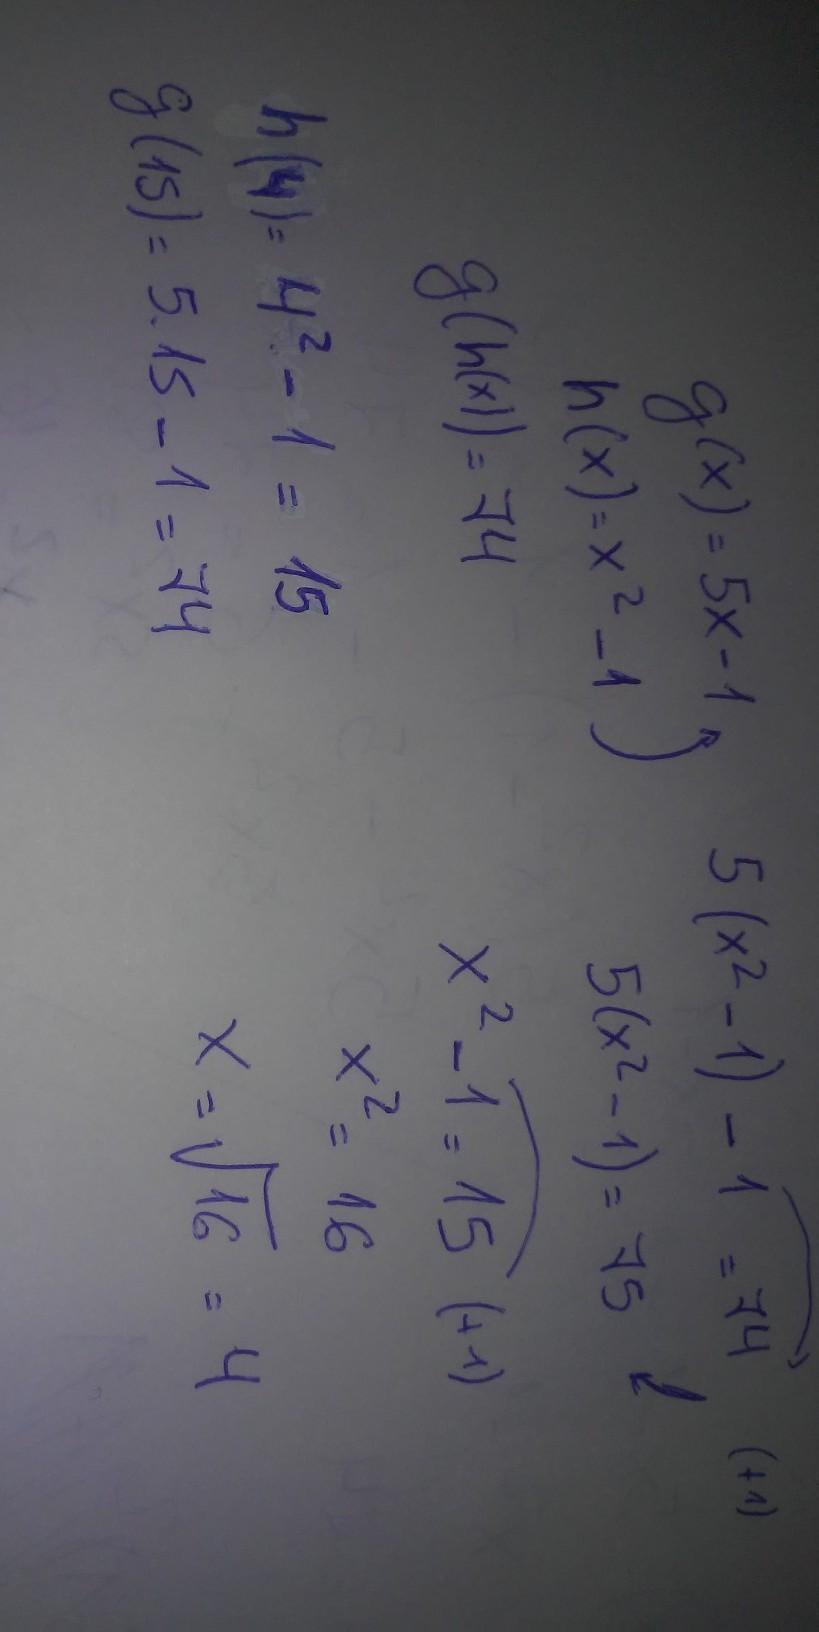 g(x) = 5x - 1
h(x) = x² - 1
g(h(x)) = 74
h(4) = 4² - 1 = 15
g(15) = 5.15 - 1 = 74
5(x² - 1) - 1 = 74 (+1)
5(x² - 1) = 75
x² - 1 = 15 (+1)
x² = 16
x = √16 = 4